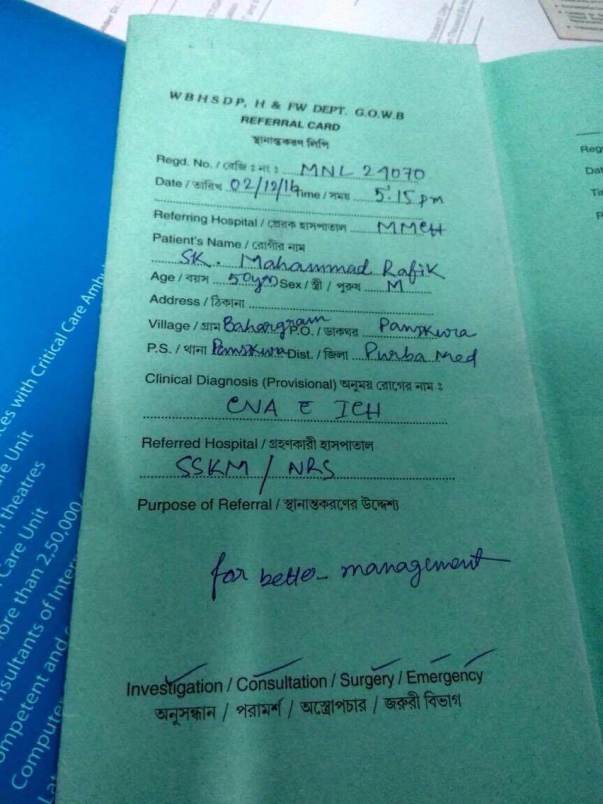 WBHSDP, H & FW DEPT. G.O.W.B
REFERRAL CARD
স্থানান্তকরণ লিপি
Regd. No. / রেজিঃ নাঃ MNL 29070
Date / তারিখ 02/12/16 Time / সময় 5:15 pm
Referring Hospital / প্রেরক হাসপাতাল MMCH
Patient's Name / রোগীর নাম
SK. Mahammad Rafik
Age / বয়স 50 Sex / স্ত্রী / পুরুষ M
Address / ঠিকানা
Village / গ্রাম P.O. / ডাকঘর Panskura
P.S. / থানা Panskura Dist. / জিলা Purba Med
Clinical Diagnosis (Provisional) অনুময় রোগের নাম :
CVA C ICH
Referred Hospital / গ্রহণকারী হাসপাতাল
SSKM / NRS
Purpose of Referral / স্থানান্তকরণের উদ্দেশ্য
for better management
Investigation / Consultation / Surgery / Emergency
অনুসন্ধান / পরামর্শ / অস্ত্রোপচার / জরুরী বিভাগ
es with Critical Care Ambu
e Unit
theatres
Care Unit
ore than 2,50,000
sultants of Inter
ompetent and
Compute
Lat
Reg
Dat
Ti
P